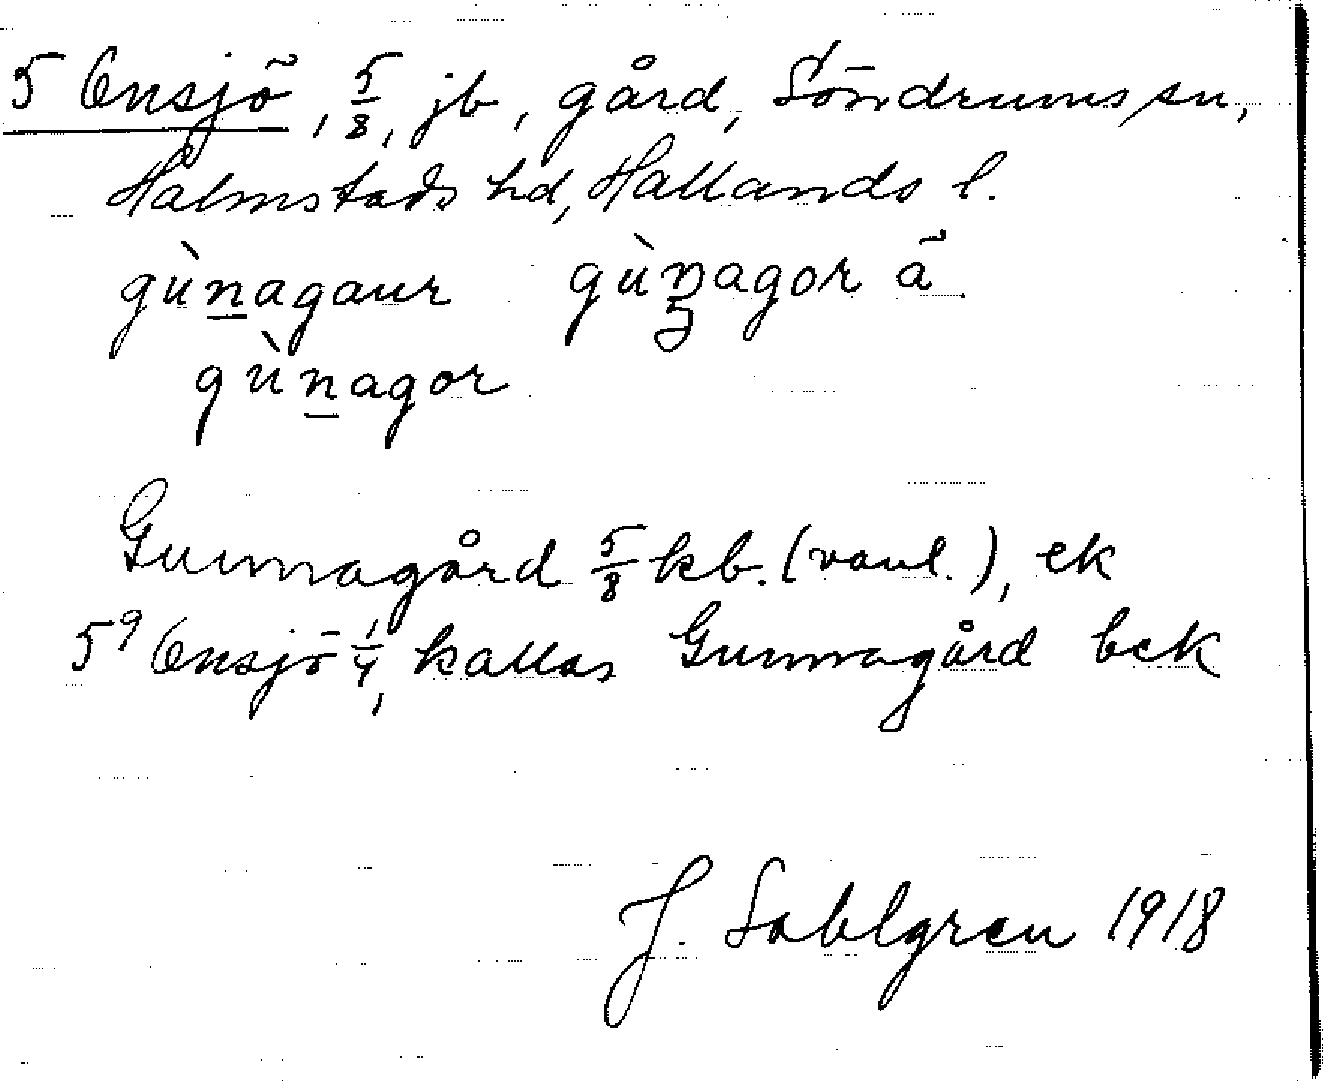 5 Ensjö, 5/8, jb, gård, Söndrums sn,
Halmstads hd, Hallands l.
gùnagaur gùnagor ā
gùnagor
Gunnagård 5/8 kb. (vanl.), ek
5⁹ Ensjö 1/4, kallas Gunnagård bck
J. Sahlgren 1918